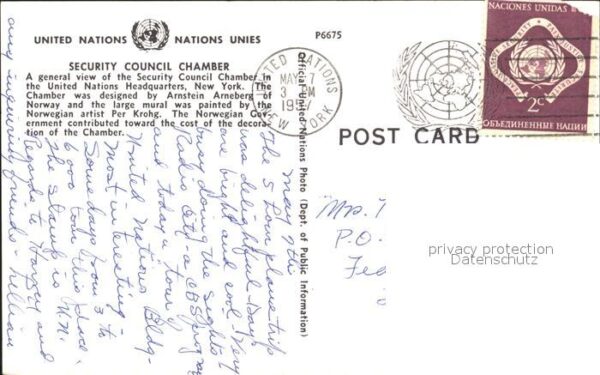 UNITED NATIONS NATIONS UNIES
P6675
SECURITY COUNCIL CHAMBER
A general view of the Security Council Chamber in
the United Nations Headquarters, New York. The
Chamber was designed by Arnstein Arneberg of
Norway and the large mural was painted by the
Norwegian artist Per Krohg. The Norwegian Gov-
ernment contributed toward the cost of the decora-
tion of the Chamber.
Official United Nations Photo (Dept. of Public Information)
UNITED NATIONS
MAY 7
3 PM
1957
NEW YORK
NACIONES UNIDAS
2c
ОБЪЕДИНЕННЫЕ НАЦИИ
POST CARD
May 7th
The plane trip
was delightful. Days
are bright and cool. Very
busy doing the sights
Radio City, a CBS program
and today a tour of
United Nations Bldg-
most interesting -
Some days from 3 to
6000 tour this place.
The stamp is U.N.
Regards to Harvey and
any inquiring friends - Lillian
Mrs.
P.O.
privacy protection
Datenschutz